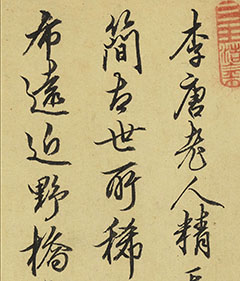 李唐老人精
簡古世所稀
希遠近野橋